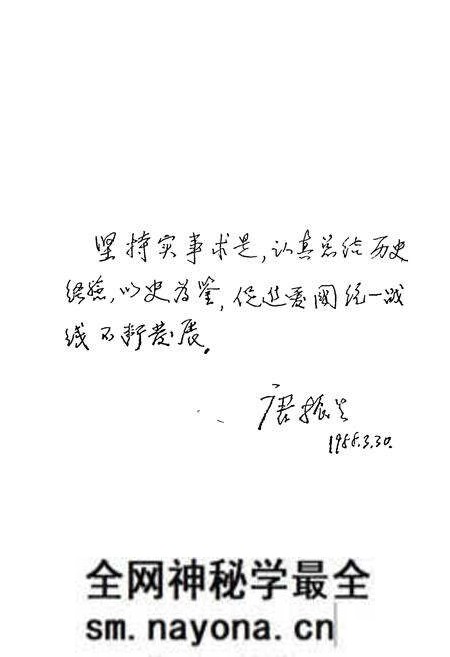 坚持实事求是，认真总结历史
经验，以史为鉴，促进爱国统一战
线不断发展。
唐振
1988.3.30.
全网神秘学最全
sm.nayona.cn